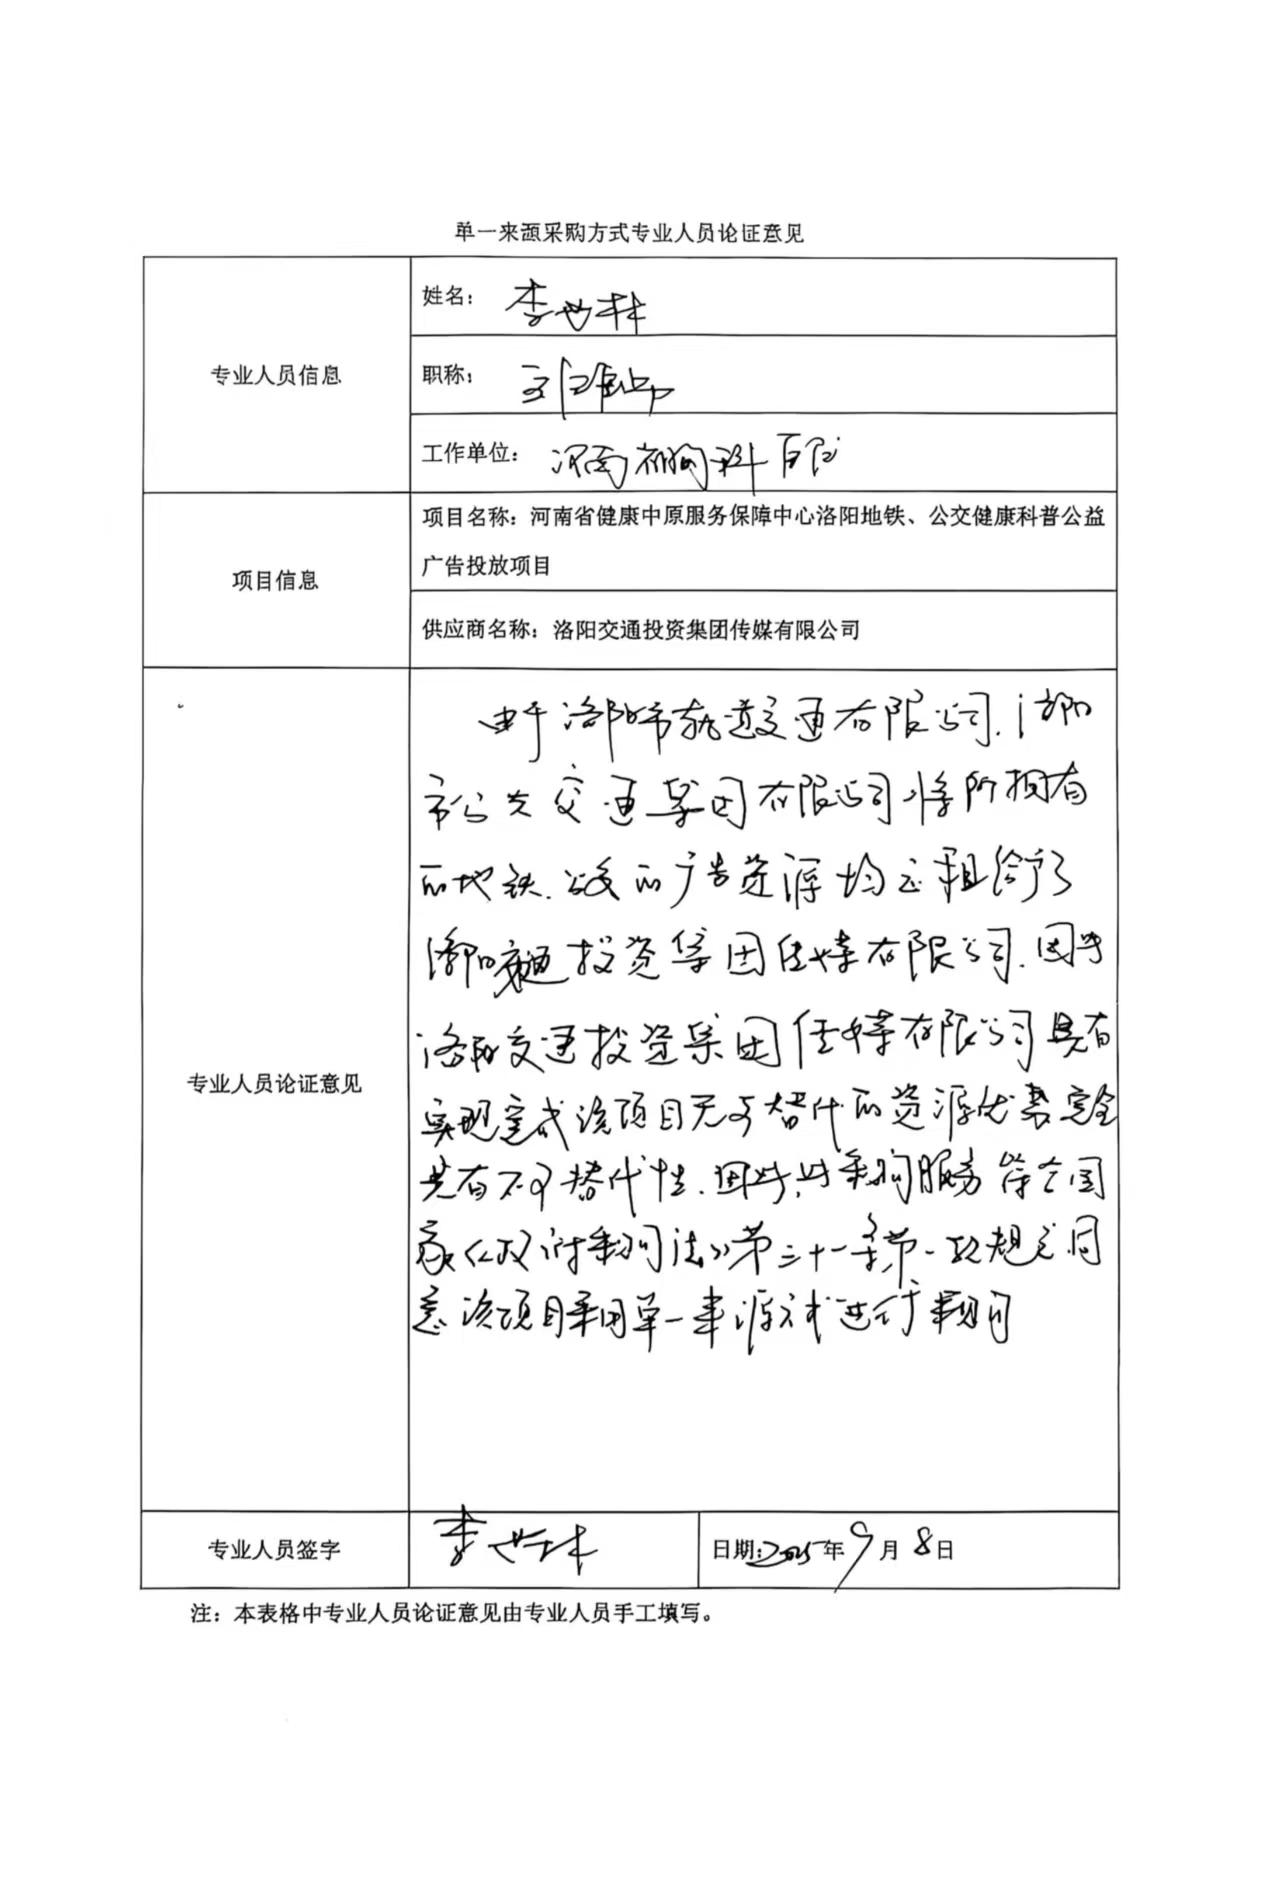 单一来源采购方式专业人员论证意见
专业人员信息
姓名： 李世林
职称： 工程师
工作单位： 河南 科
项目信息
项目名称：河南省健康中原服务保障中心洛阳地铁、公交健康科普公益
广告投放项目
供应商名称：洛阳交通投资集团传媒有限公司
专业人员论证意见
由于洛阳市轨道交通有限公司、洛阳
市公共交通集团有限公司将所拥有
的地铁、公交的广告资源均已租给了
洛阳交通投资集团传媒有限公司、因此
洛阳交通投资集团传媒有限公司具有
实现完成该项目无可替代的资源优势完全
具有不可替代性、因此，此采购服务符合国
家《政府采购法》第三十一条第一款规定同
意该项目采用单一来源方式进行采购
专业人员签字
李世林
日期：2025年9月8日
注：本表格中专业人员论证意见由专业人员手工填写。